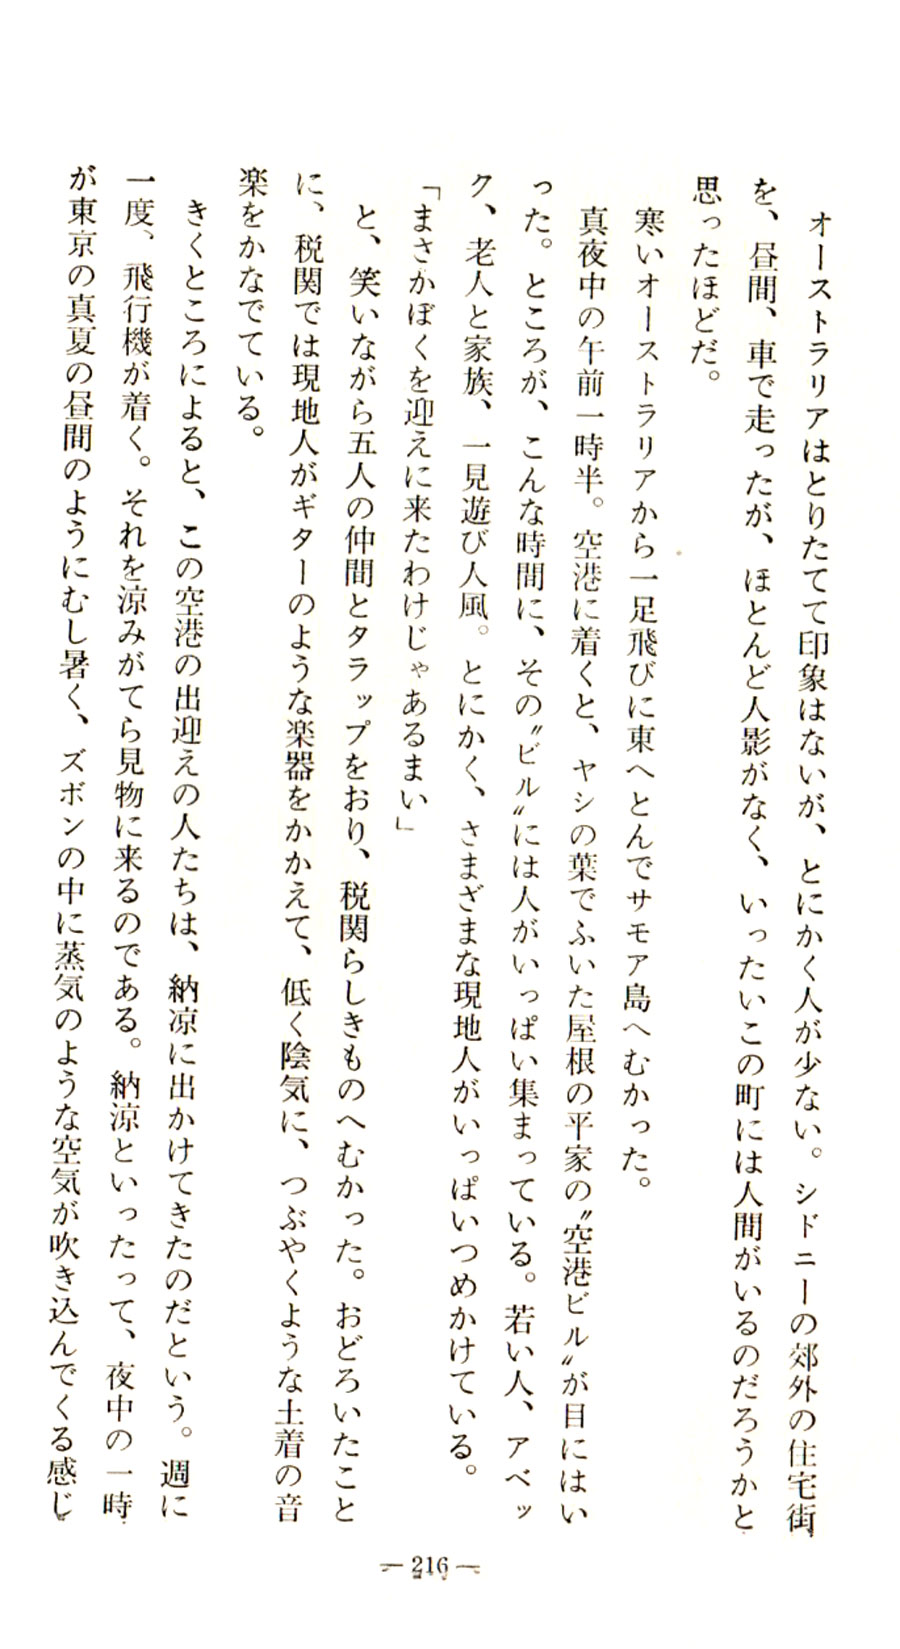 オーストラリアはとりたてて印象はないが、とにかく人が少ない。シドニーの郊外の住宅街
を、昼間、車で走ったが、ほとんど人影がなく、いったいこの町には人間がいるのだろうかと
思ったほどだ。
寒いオーストラリアから一足飛びに東へとんでサモア島へむかった。
真夜中の午前一時半。空港に着くと、ヤシの葉でふいた屋根の平家の〝空港ビル〟が目にはい
った。ところが、こんな時間に、その〝ビル〟には人がいっぱい集まっている。若い人、アベッ
ク、老人と家族、一見遊び人風。とにかく、さまざまな現地人がいっぱいつめかけている。
「まさかぼくを迎えに来たわけじゃあるまい」
と、笑いながら五人の仲間とタラップをおり、税関らしきものへむかった。おどろいたこと
に、税関では現地人がギターのような楽器をかかえて、低く陰気に、つぶやくような土着の音
楽をかなでている。
きくところによると、この空港の出迎えの人たちは、納涼に出かけてきたのだという。週に
一度、飛行機が着く。それを涼みがてら見物に来るのである。納涼といったって、夜中の一時
が東京の真夏の昼間のようにむし暑く、ズボンの中に蒸気のような空気が吹き込んでくる感じ
— 216 —